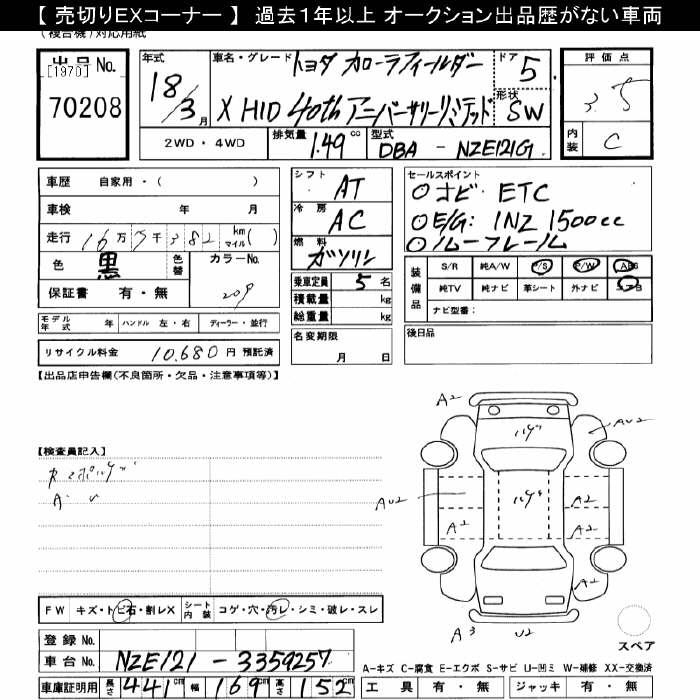 【 売切りEXコーナー 】 過去1年以上 オークション出品歴がない車両
(複合機)対応用紙
出品 No.
[1970]
70208
年式
18/3月
車名・グレード
トヨタ カローラフィールダー
X HID 40th アニバーサリーリミテッド
ドア
5
形状
SW
評価点
3.5
内装
C
2WD ・ 4WD
排気量
1.49 cc
型式
DBA - NZE121G
車歴 自家用・( )
車検 年 月
走行 16万 千382 km マイル( )
色 黒 色替 カラーNo. 209
保証書 有・無
シフト AT
冷房 AC
燃料 ガソリン
乗車定員 5 名
積載量 kg
総重量 kg
セールスポイント
○ナビ ETC
○E/G: 1NZ 1500cc
○ノムーフレーム
装備品
S/R 純A/W P/S P/W ABS
純TV 純ナビ 革シート 外ナビ エアB
ナビ型番:
モデル年式 年 ハンドル 左・右 ディーラー・並行
名変期限 月 日
後日品
リサイクル料金 10,680 円 預託済
【出品店申告欄(不良箇所・欠品・注意事項等)】
【検査員記入】
A U
A2
AU2
AU2
A2
A2
A2
A2
A3
U2
FW キズ・トビ石・割レX シート内装 コゲ・穴・汚レ・シミ・破レ・スレ
スペア
登録 No.
車台 No. NZE121 - 3359257
A-キズ C-腐食 E-エクボ S-サビ U-凹ミ W-補修 XX-交換済
車庫証明用 長さ 441 cm 幅 169 cm 高さ 152 cm
工具 有・無 ジャッキ 有・無